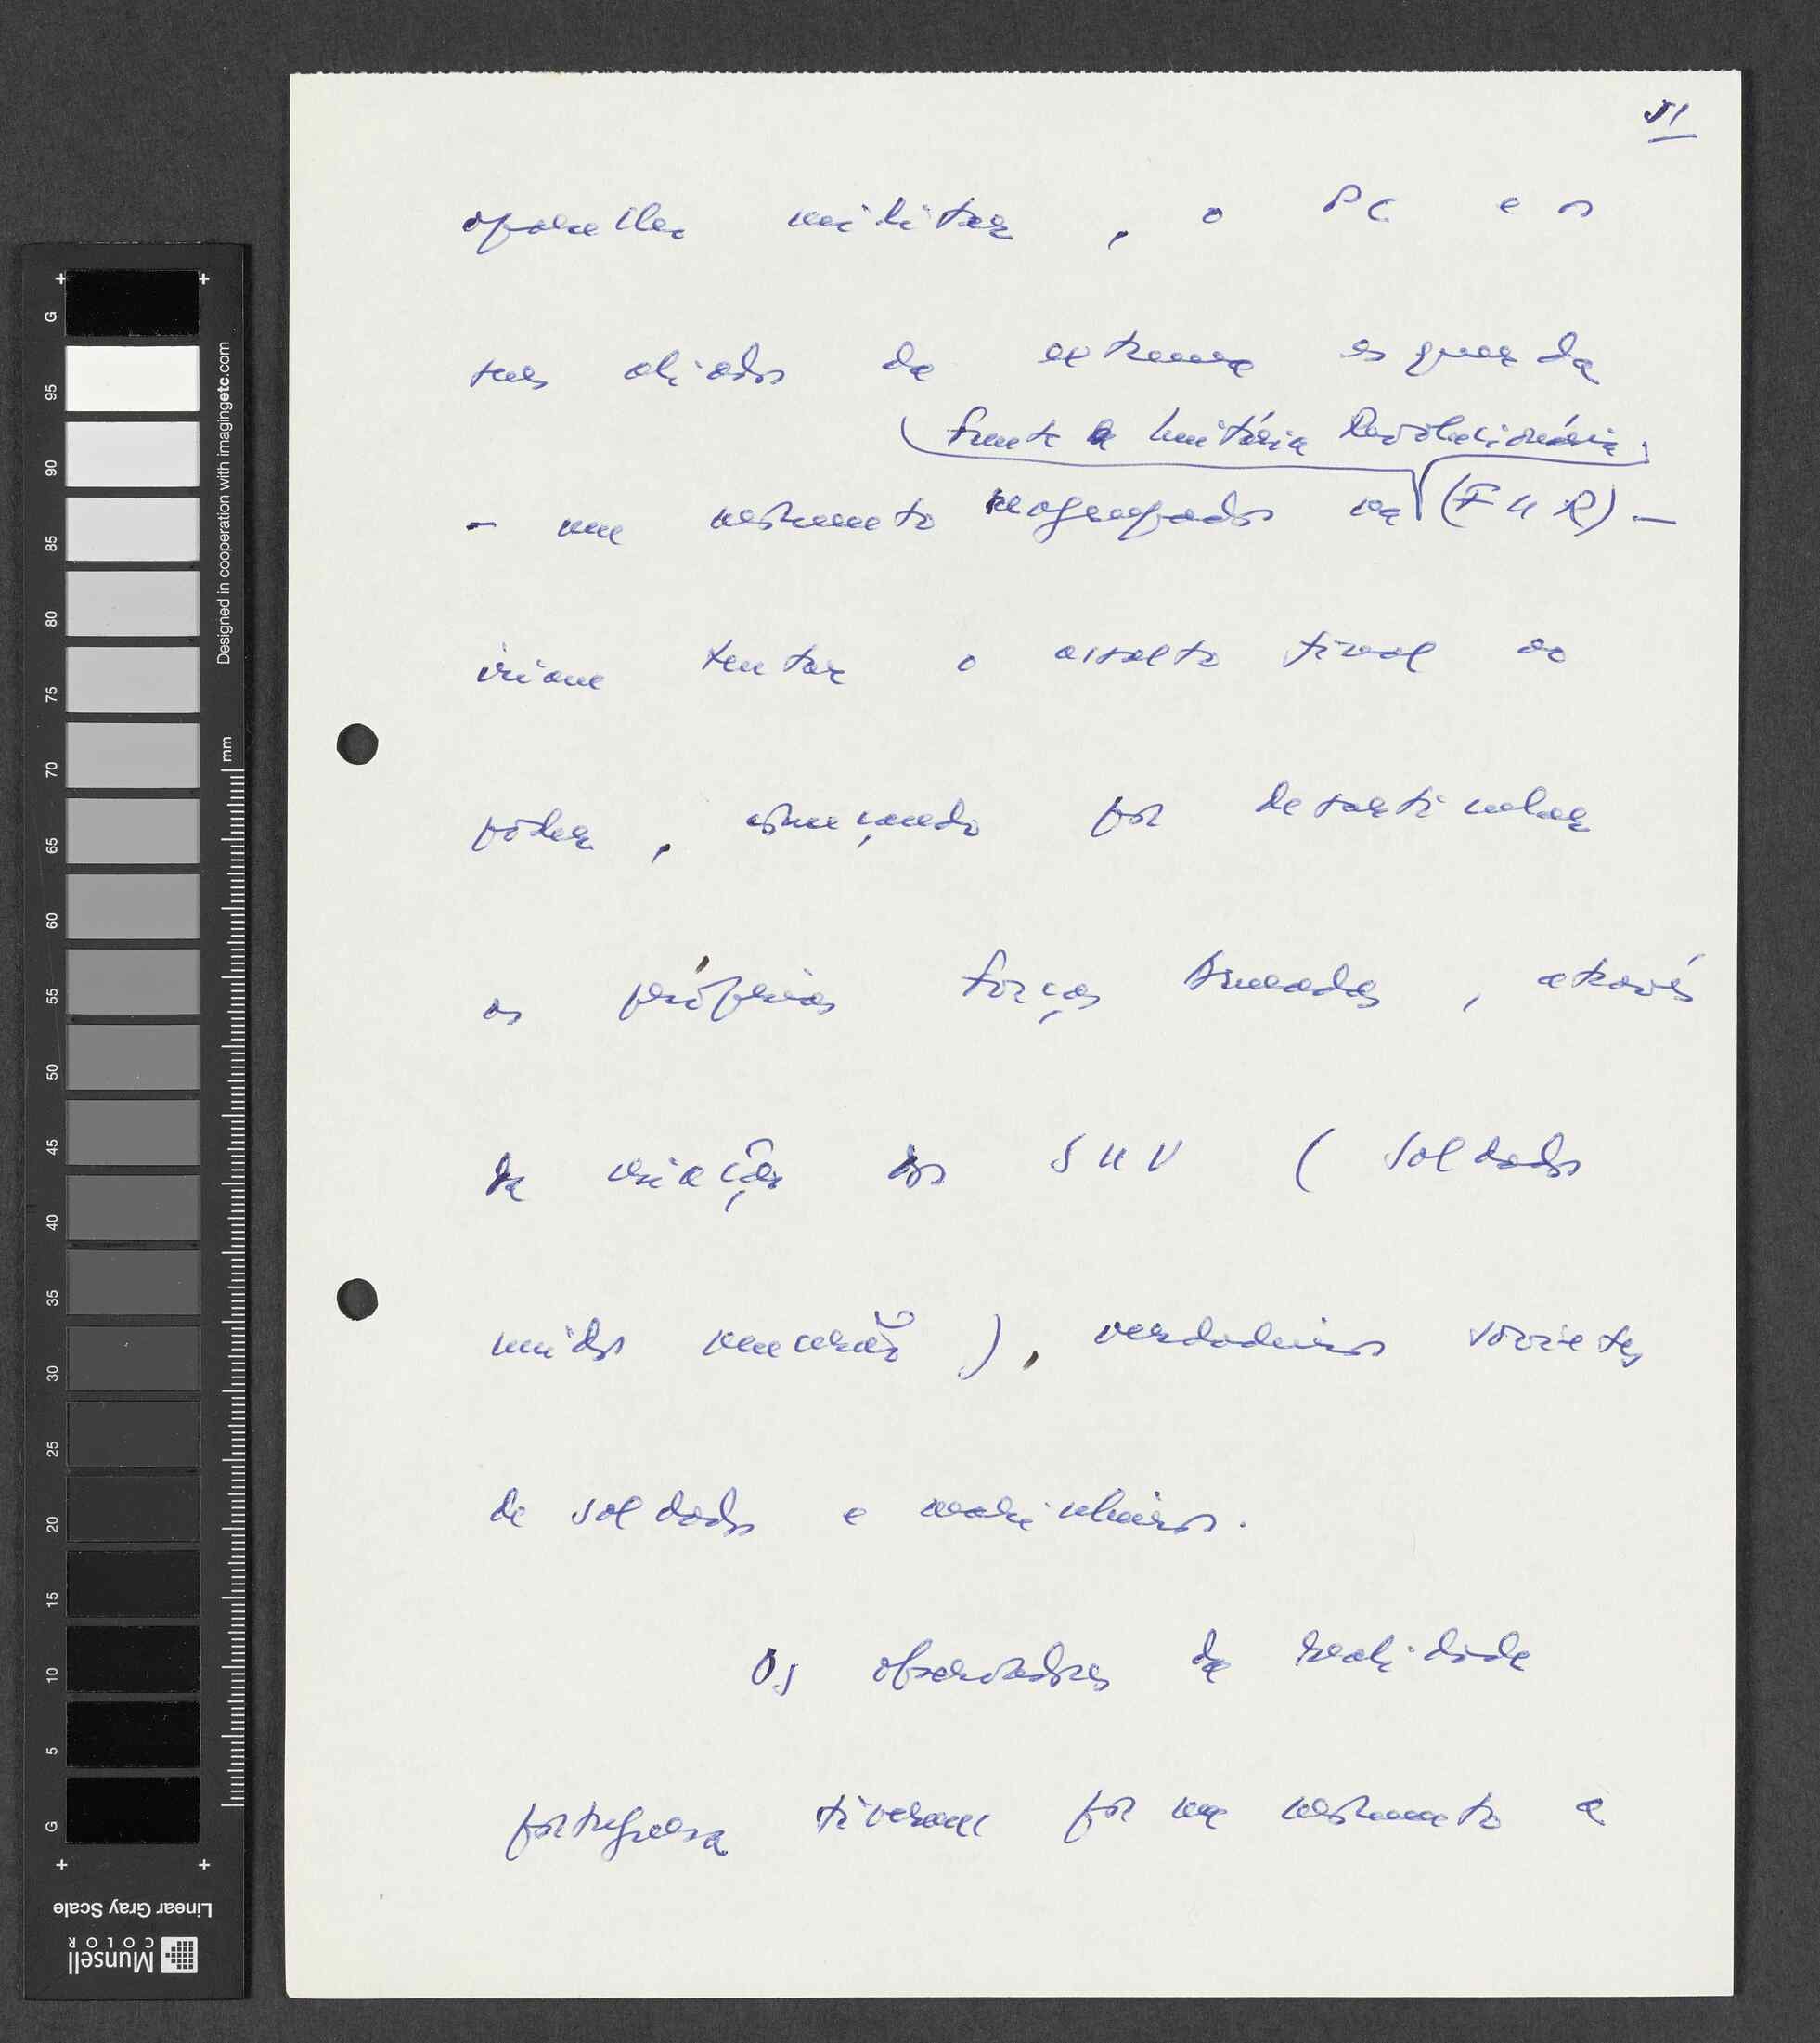 51
aparelho militar, o PC e os
seus aliados da extrema esquerda
Frente Unitária Revolucionária
- um momento reagrupados na (FUR) -
iriam tentar o assalto final ao
poder, começando por desarticular
as próprias Forças Armadas, através
da criação dos SUV (Soldados
unidos vencerão), verdadeiros sovietes
de soldados e marinheiros.
Os observadores da realidade
portuguesa tiveram por um momento a
G
95
90
85
80
75
70
65
60
55
50
45
40
35
30
25
20
15
10
5
G
mm
Designed in cooperation with imagingetc.com
Linear Gray Scale
Munsell
COLOR